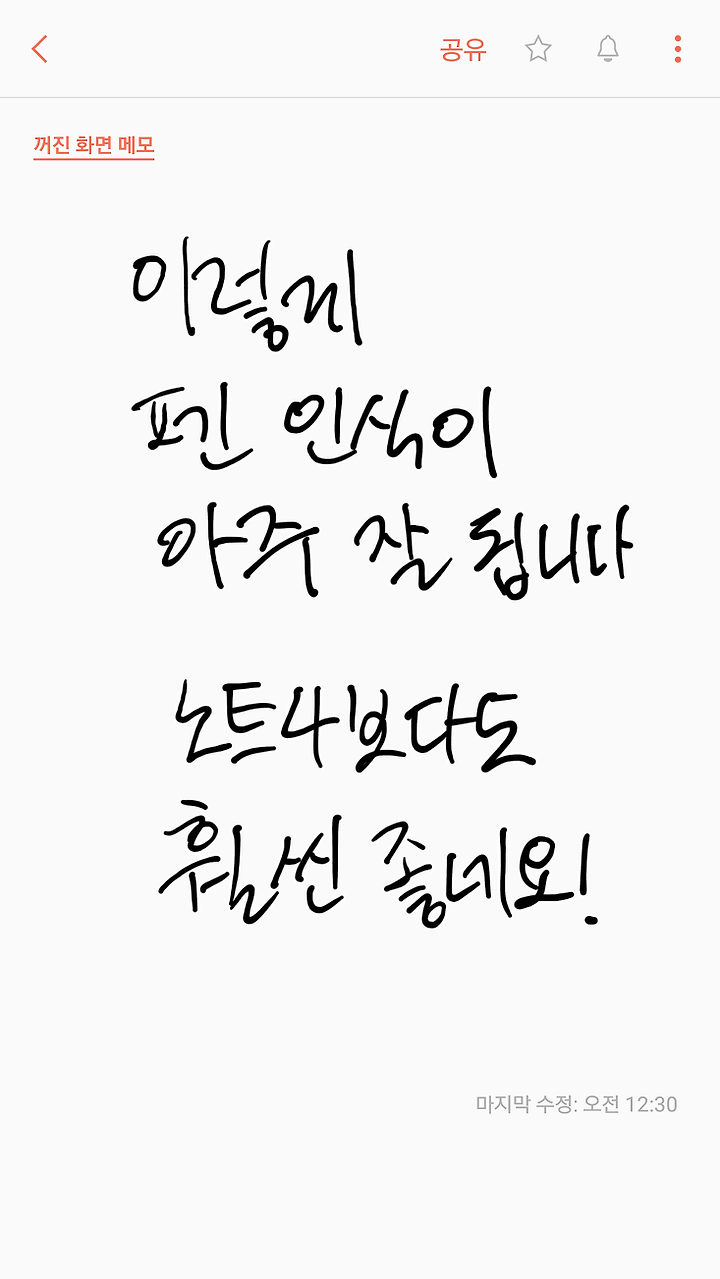 공유
꺼진 화면 메모
이렇게
펜 인식이
아주 잘 됩니다
노트4보다도
훨씬 좋네요!
마지막 수정: 오전 12:30